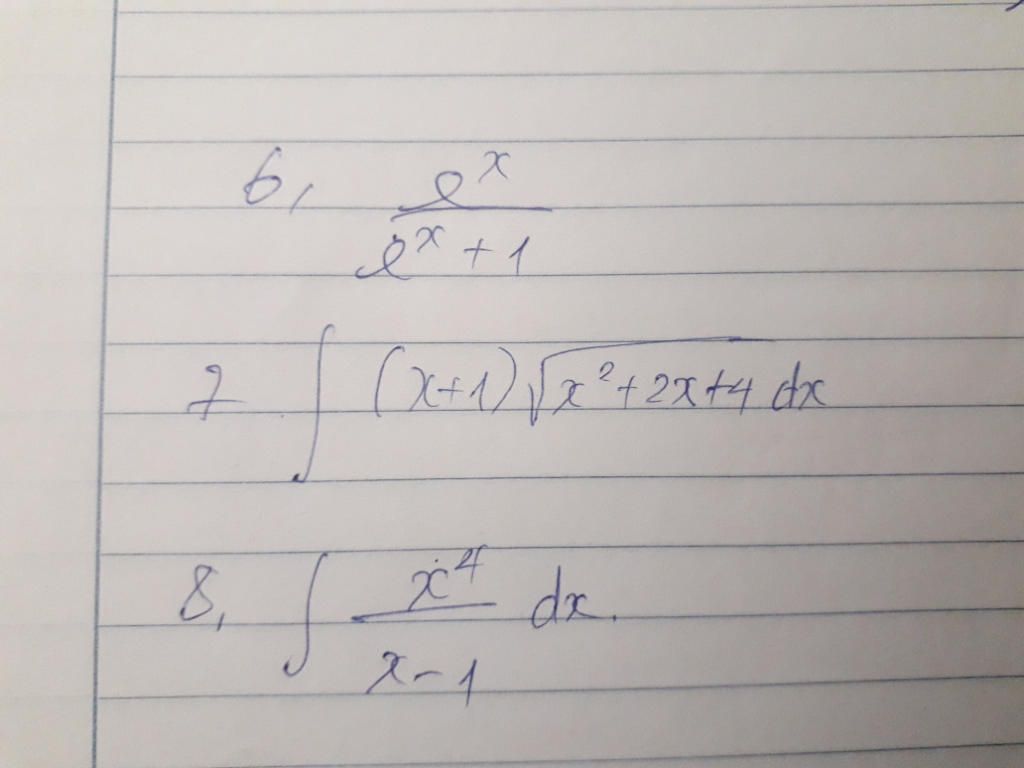 6, e^x / (e^x + 1)
7 ∫ (x+1)√(x²+2x+4) dx
8, ∫ x⁴ / (x-1) dx.